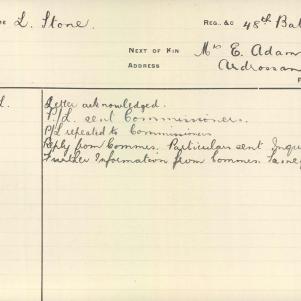 L. Stone.
REG. &C 48th Bat
NEXT OF KIN Mrs E. Adam
ADDRESS Ardrossan
L. Letter acknowledged.
P/L. sent Commissioners.
P/L repeated to Commissioners
Reply from Commrs. Particulars sent Inqu
Further Information from Commrs.